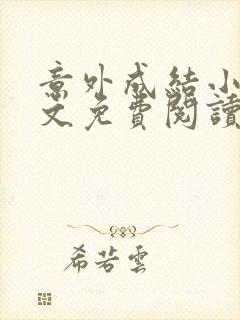 意外成結小
文免費閱讀
希若雲